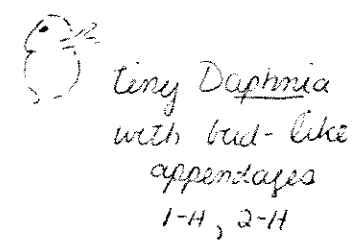 tiny Daphnia
with bud-like
appendages
1-H, 2-H